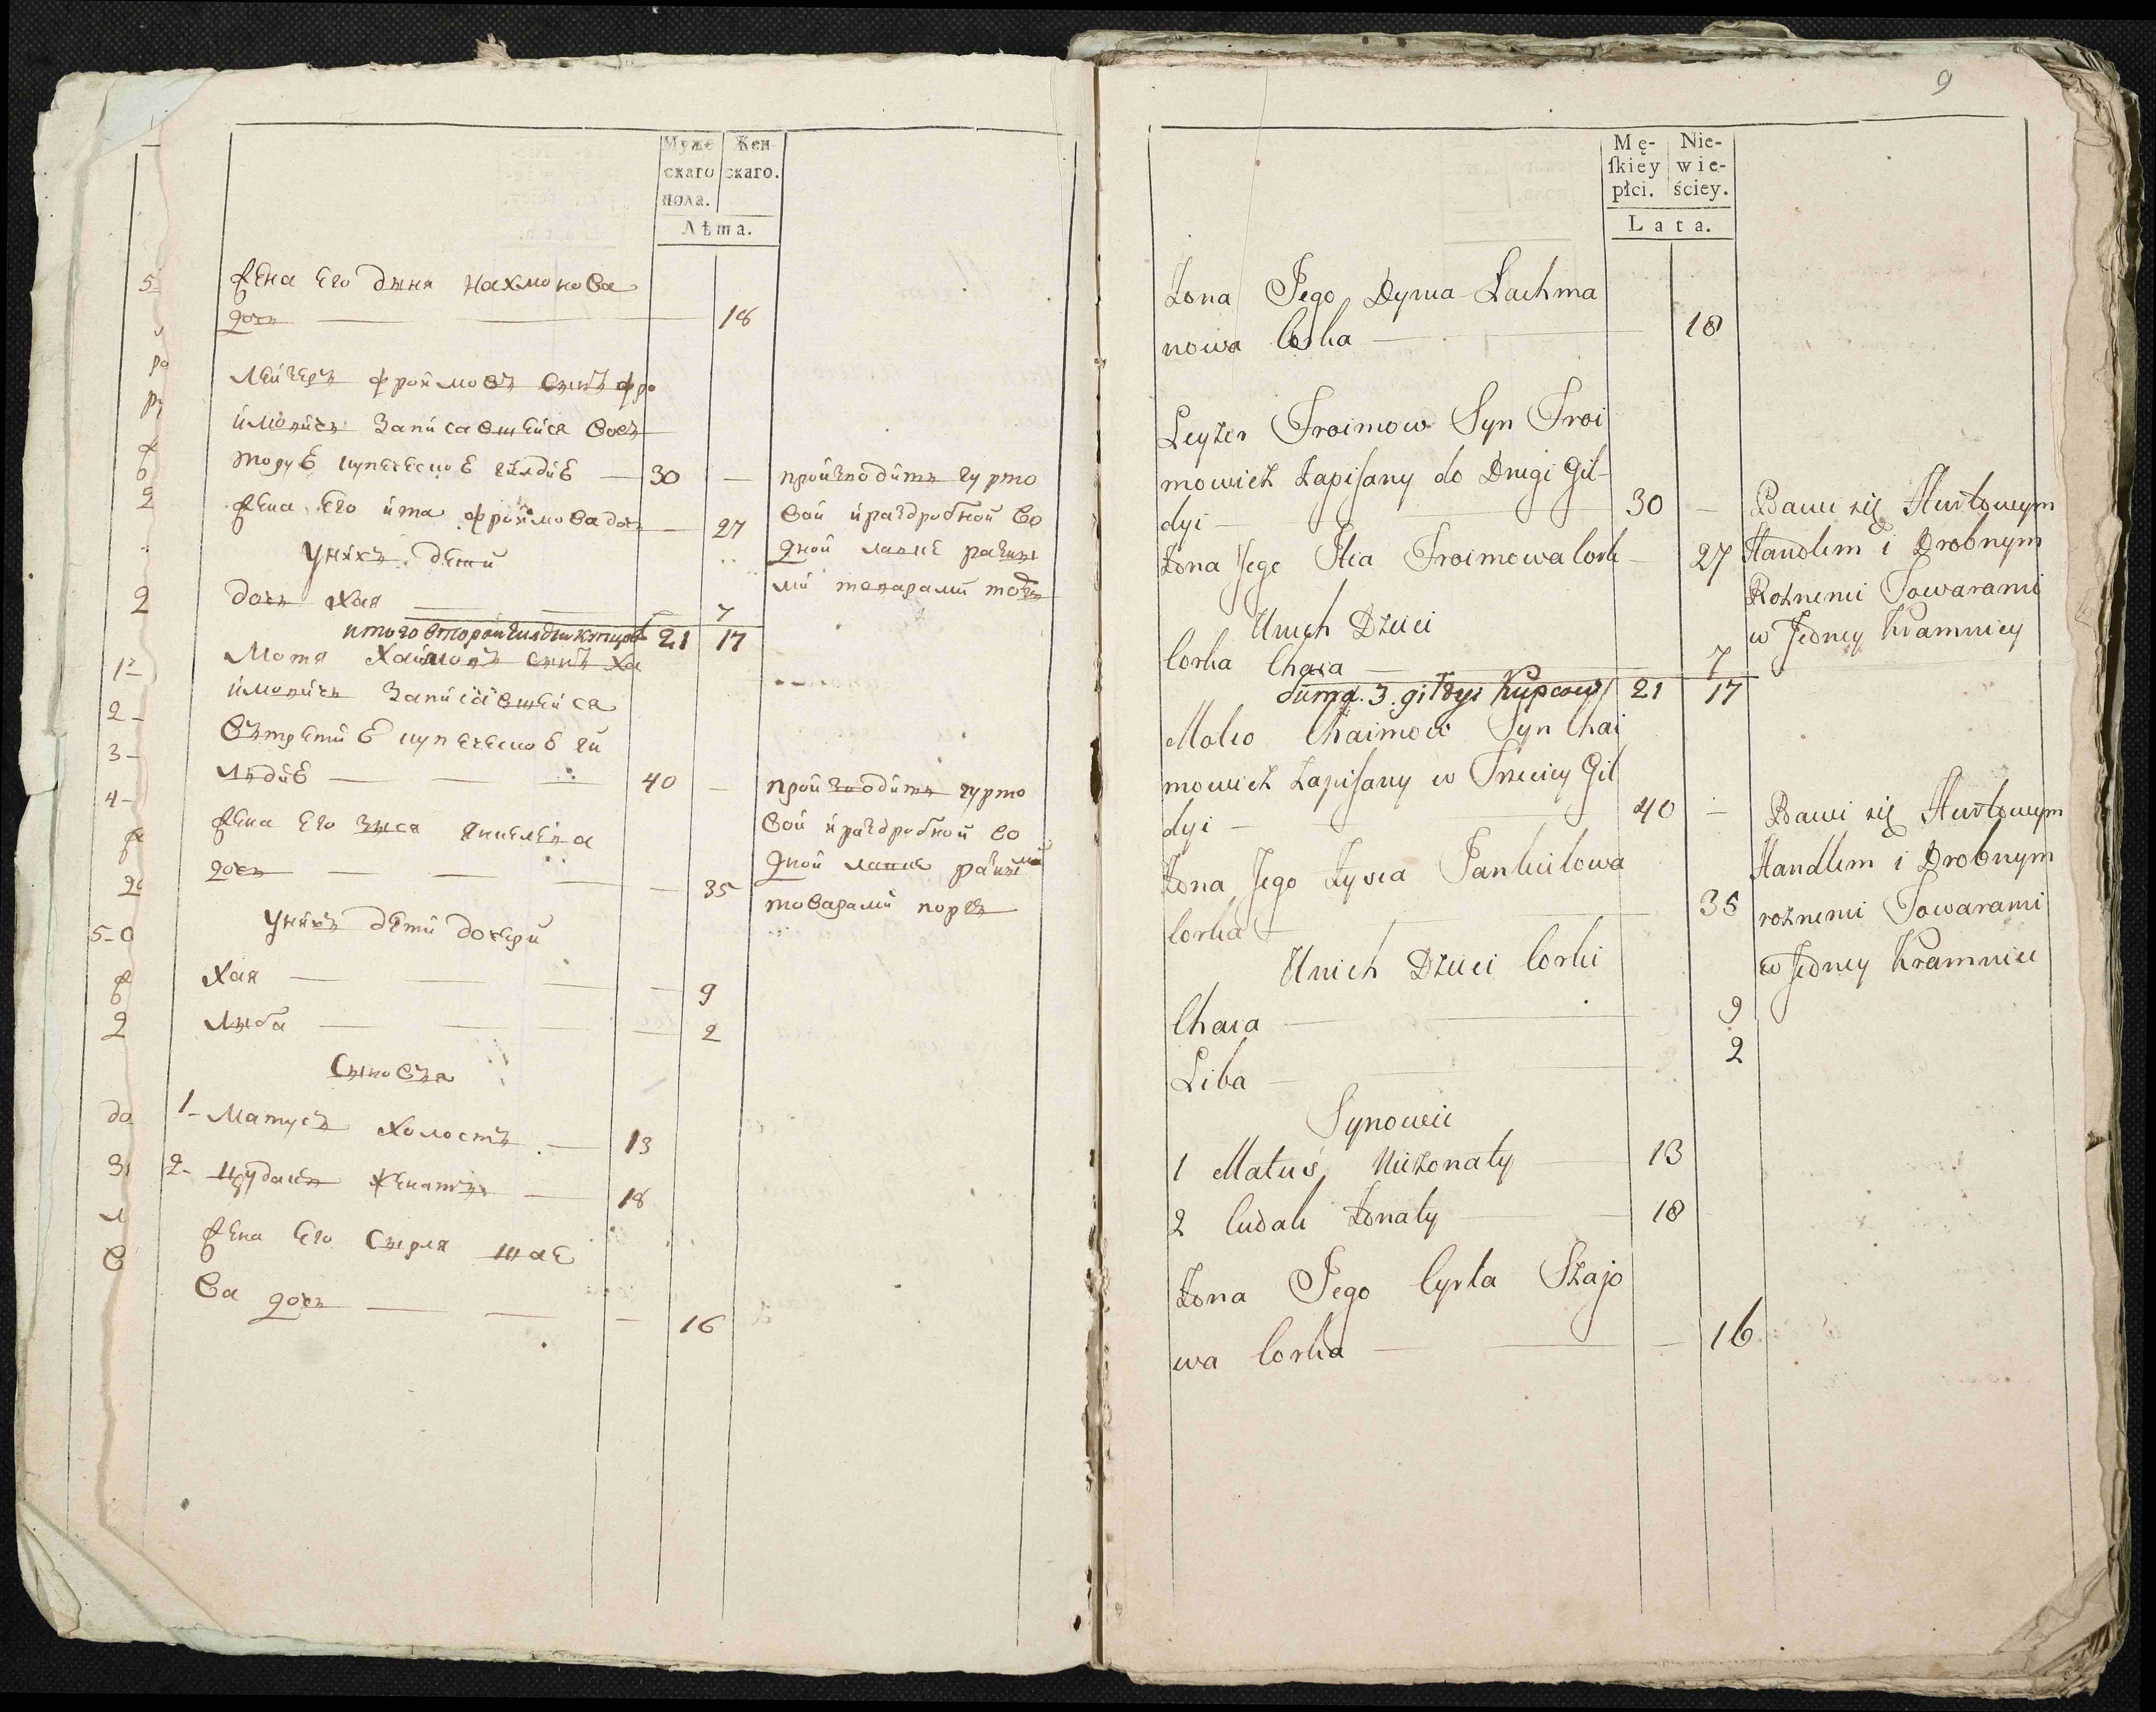 Муже
скаго
пола.
Жен
скаго.
Лѣта.
5-
жена Его дыня Нахмонова
дочь 18
Лейзеръ Фроймовъ сынъ Фро
ймовичъ Записавшейся вовъ
торуе купеческое гилдие — 30 —
жена Его ита Фроймова дочь — 27
Унихъ дети
дочь Хая 7
итого второй гилдии купцов 21 17
производитъ гурто
вой и раздробной во
дной лавке разны
ми товарами торгъ
1-
Мотя Хаймовъ сынъ Ха
2-
ймовичъ Записавшейся
3-
Вътретие купеческое ги
4-
лдие 40 —
жена Его Зыся Янкелева
дочь 35
Унихъ дети дочери
5-0
Хая 9
Лыба 2
Сыновья
1- Матусъ холостъ — 13
2- Цудикъ женатъ — 18
жена Его Сырля шае
ва дочь 16
производитъ гурто
вой и раздробной во
дной лавке разными
товарами торгъ
9
Mę-
ſkiey
płci.
Nie-
wie-
ściey.
Lata.
Zona Jego Dynia Lachma
nowa Corka 18
Leyzer Froimow Syn Froi
mowicz Zapiſany do Drugi Gil-
dyi 30 —
Zona Jego Itia Froimowa Cork 27
Unich Dzieci
Corka Chaia 7
Suma. 3. giłdyi Kupcow 21 17
Bawi się Hurtowym
Handlem i Drobnym
Roznemi Towarami
w Jedney Kramnicy
Moko Chaimow Syn Chai
mowicz Zapiſany w Trzeciey Gil
dyi 40 —
Zona Jego Zysia Jankielowa
Corka 35
Unich Dzieci Corki
Chaia 9
Liba 2
Synowie
1 Matuś Niezonaty 13
2 Cudak Zonaty 18
Zona Jego Cyrla Szajo
wa Corka 16
Bawi się Hurtowym
Handlem i Drobnym
roznemi Towarami
w Jedney Kramnice